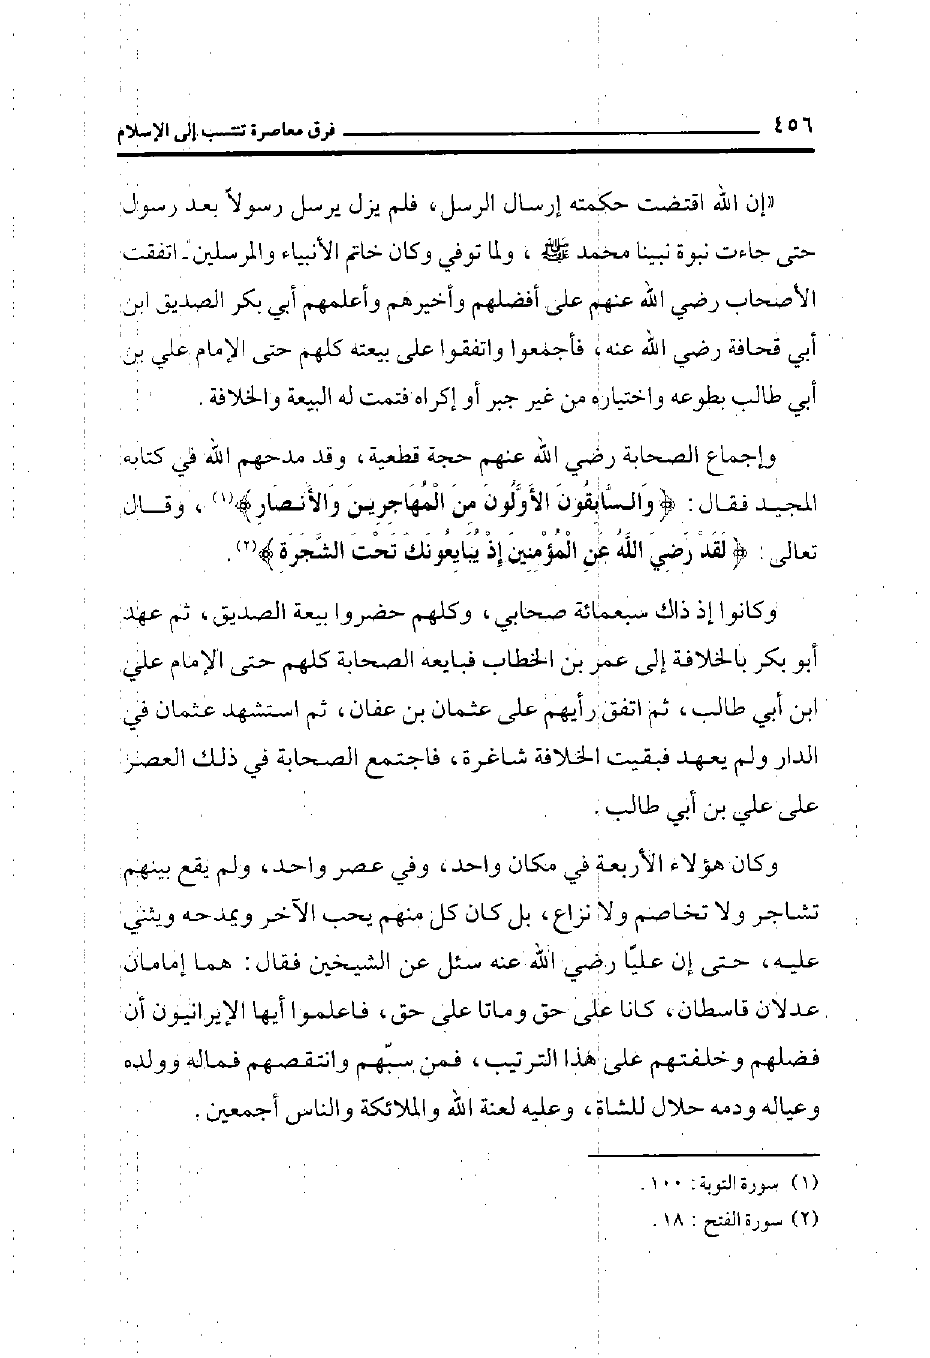 ٤٥٦ فرق معاصرة تنتسب إلى الإسلام
«إن الله اقتضت حكمته إرسال الرسل، فلم يزل يرسل رسولاً بعد رسول
حتى جاءت نبوة نبينا محمد ﷺ، ولما توفي وكان خاتم الأنبياء والمرسلين ـ اتفقت
الأصحاب رضي الله عنهم على أفضلهم وأخيرهم وأعلمهم أبي بكر الصديق ابن
أبي قحافة رضي الله عنه، فأجمعوا واتفقوا على بيعته كلهم حتى الإمام علي بن
أبي طالب بطوعه واختياره من غير جبر أو إكراه فتمت له البيعة والخلافة.
وإجماع الصحابة رضي الله عنهم حجة قطعية، وقد مدحهم الله في كتابه
المجيد فقال: ﴿وَالسَّابِقُونَ الأَوَّلُونَ مِنَ الْمُهَاجِرِينَ وَالأَنصَارِ﴾(١)، وقال
تعالى: ﴿لَقَدْ رَضِيَ اللَّهُ عَنِ الْمُؤْمِنِينَ إِذْ يُبَايِعُونَكَ تَحْتَ الشَّجَرَةِ﴾(٢).
وكانوا إذ ذاك سبعمائة صحابي، وكلهم حضروا بيعة الصديق، ثم عهد
أبو بكر بالخلافة إلى عمر بن الخطاب فبايعه الصحابة كلهم حتى الإمام علي
ابن أبي طالب، ثم اتفق رأيهم على عثمان بن عفان، ثم استشهد عثمان في
الدار ولم يعهد فبقيت الخلافة شاغرة، فاجتمع الصحابة في ذلك العصر
على علي بن أبي طالب.
وكان هؤلاء الأربعة في مكان واحد، وفي عصر واحد، ولم يقع بينهم
تشاجر ولا تخاصم ولا نزاع، بل كان كل منهم يحب الآخر ويمدحه ويثني
عليه، حتى إن عليًّا رضي الله عنه سئل عن الشيخين فقال: هما إمامان
عدلان قاسطان، كانا على حق وماتا على حق، فاعلموا أيها الإيرانيون أن
فضلهم وخلفتهم على هذا الترتيب، فمن سبّهم وانتقصهم فماله وولده
وعياله ودمه حلال للشاة، وعليه لعنة الله والملائكة والناس أجمعين.
(١) سورة التوبة: ١٠٠.
(٢) سورة الفتح: ١٨.